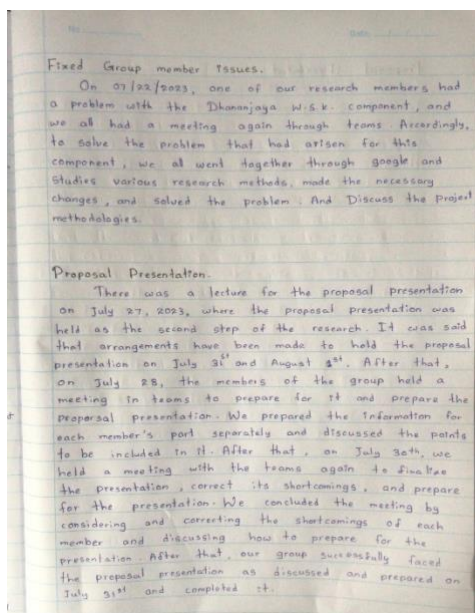 Fixed Group member issues.
On 07/22/2023, one of our research members had
a problem with the Dhananjaya W.S.K. component, and
we all had a meeting again through teams. Accordingly,
to solve the problem that had arisen for this
component, we al went together through google and
Studies various research methods, made the necessary
changes, and solved the problem. And Discuss the project
methodologies.
Proposal Presentation.
There was a lecture for the proposal presentation
on July 27, 2023, where the proposal presentation was
held as the second step of the research. It was said
that arrangements have been made to hold the proposal
presentation on July 31st and August 1st. After that,
on July 28, the members of the group held a
meeting in teams to prepare for it and prepare the
proporsal presentation. We prepared the information for
each member's part separately and discussed the points
to be included in it. After that, on July 30th, we
held a meeting with the teams again to finalize
the presentation, correct its shortcomings, and prepare
for the presentation. We concluded the meeting by
considering and correrting the shortcomings of each
member and discussing how to prepare for the
presentation. After that, our group successfully faced
the proposal presentation as discussed and prepared on
July 31st and completed it.